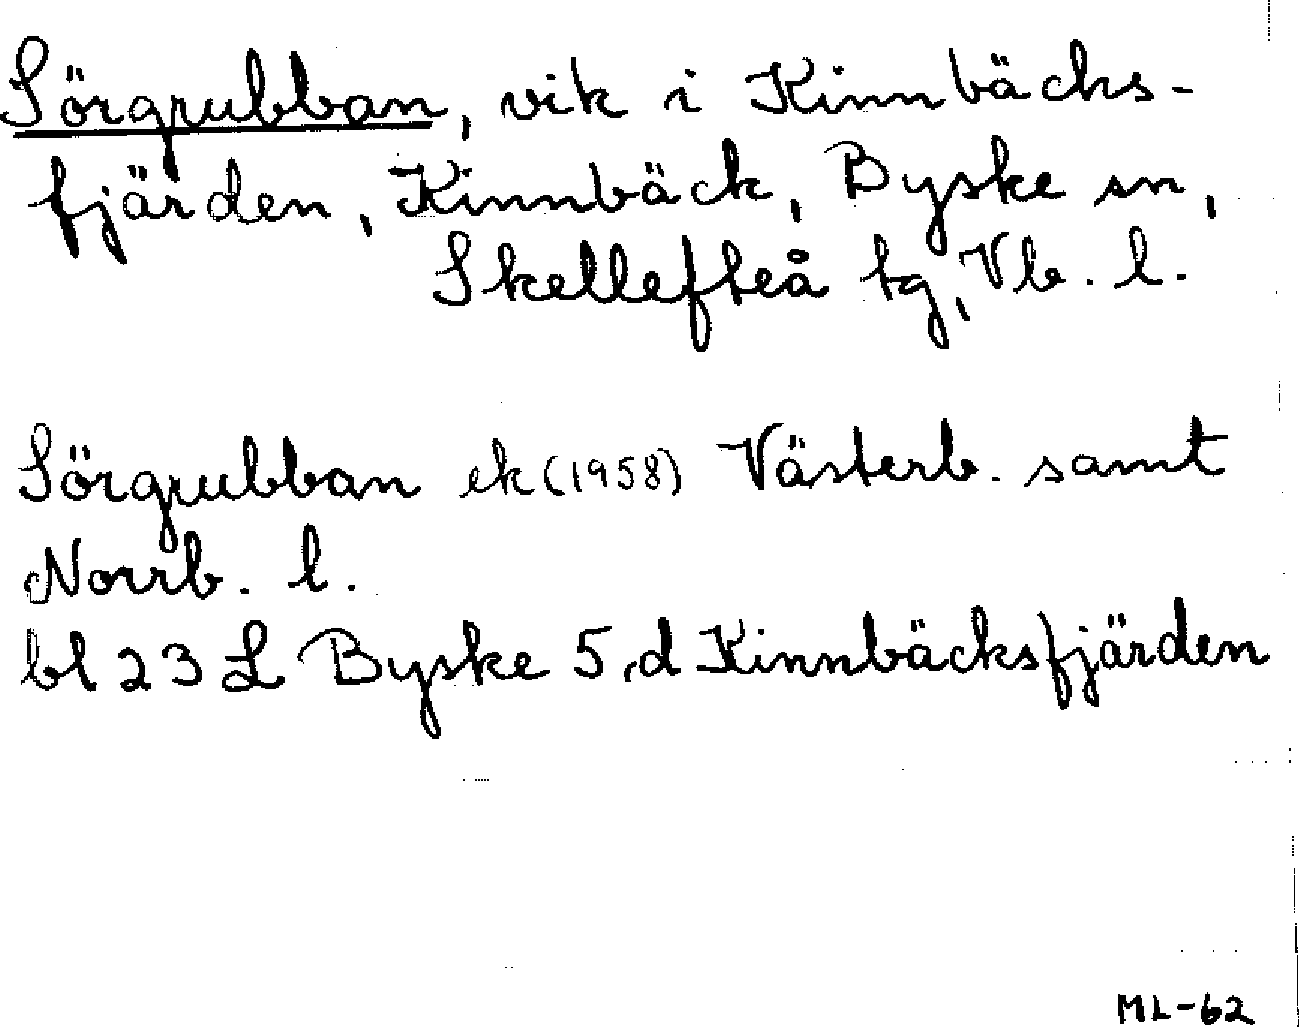 Sörgrubban, vik i Kinnbäcks-
fjärden, Kinnbäck, Byske sn,
Skellefteå tg, Vb. l.
Sörgrubban ek (1958) Västerb. samt
Norrb. l.
bl 23 L Byske 5 d Kinnbäcksfjärden
ML-62